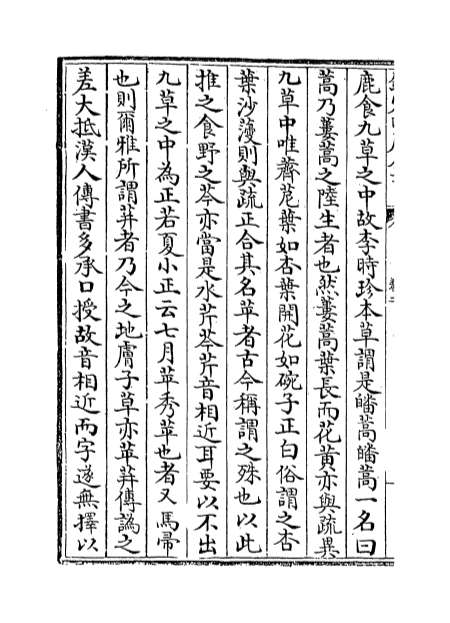 鹿食九草之中故李時珍本草謂是皤蒿皤蒿一名曰
蒿乃蔞蒿之陸生者也然蔞蒿葉長而花黃亦與疏異
九草中唯薺苨葉如杏葉開花如碗子正白俗謂之杏
葉沙薓則與疏正合其名苹者古今稱謂之殊也以此
推之食野之芩亦當是水芹芩芹音相近耳要以不出
九草之中為正若夏小正云七月苹秀苹也者又馬帚
也則爾雅所謂荓者乃今之地膚子草亦苹荓傳譌之
差大抵漢人傳書多承口授故音相近而字遂無擇以